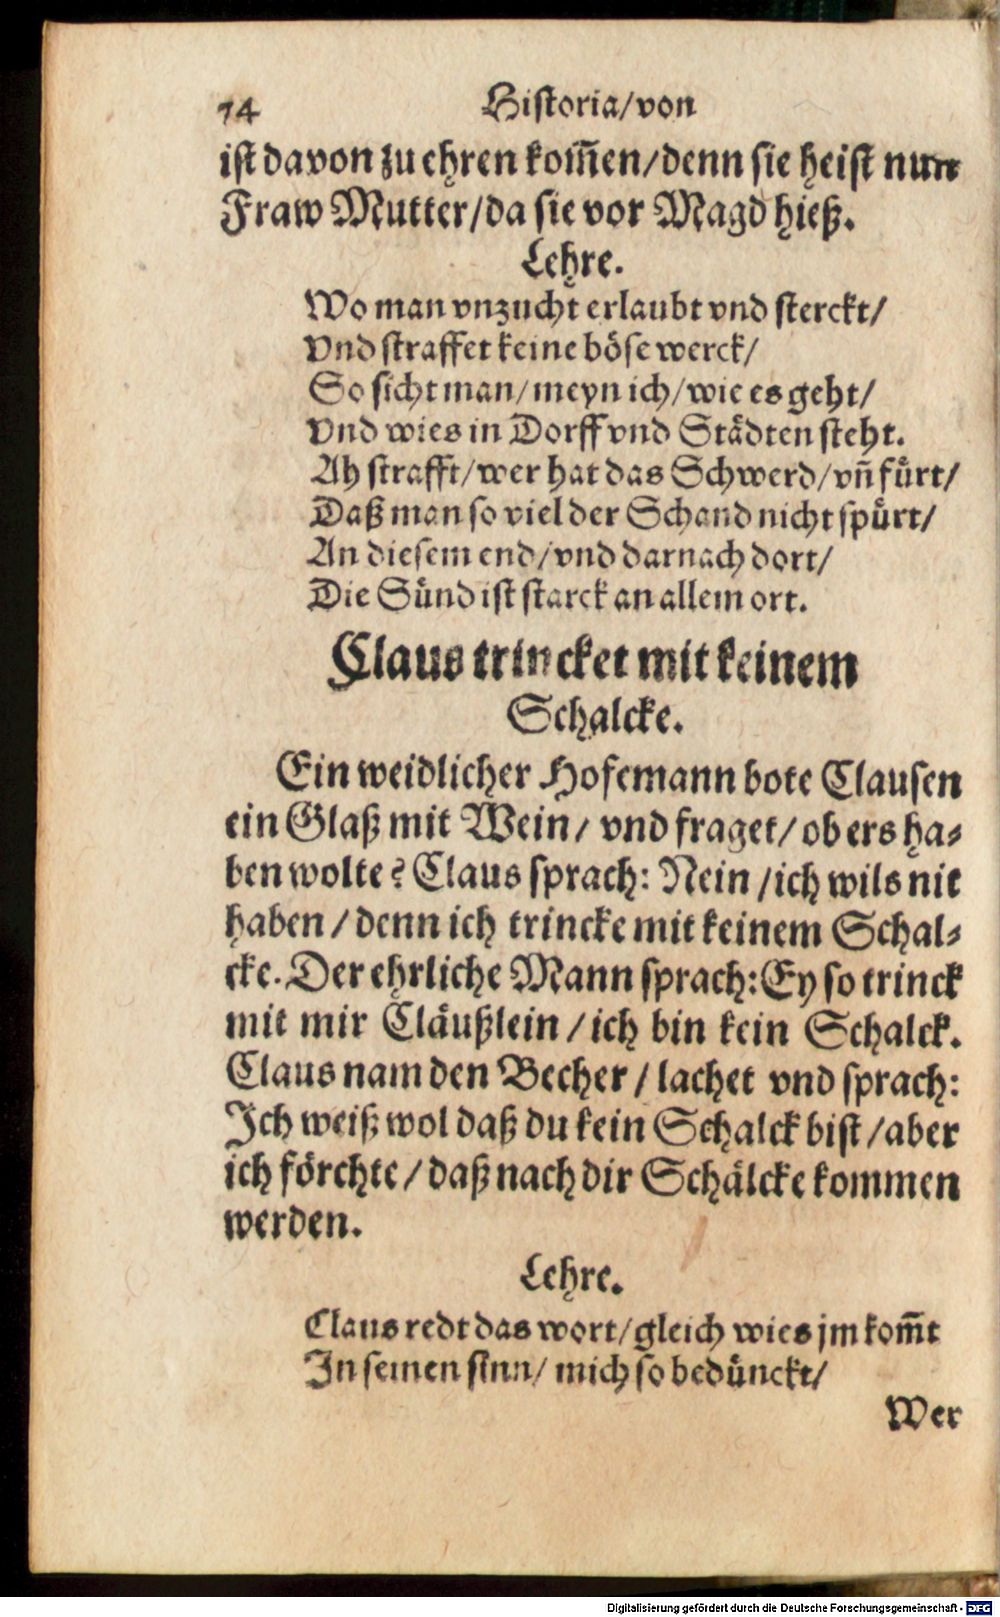 74 Historia/von
ist davon zu ehren kom̃en/denn sie heist nun
Fraw Mutter/da sie vor Magd hieß.
Lehre.
Wo man vnzucht erlaubt vnd sterckt/
Vnd straffet keine böse werck/
So sicht man/meyn ich/wie es geht/
Vnd wies in Dorff vnd Städten steht.
Ah strafft/wer hat das Schwerd/vn̄ fürt/
Daß man so viel der Schand nicht spürt/
An diesem end/vnd darnach dort/
Die Sünd ist starck an allem ort.
Claus trincket mit keinem
Schalcke.
Ein weidlicher Hofemann bote Clausen
ein Glaß mit Wein/ vnd fraget/ ob ers ha-
ben wolte? Claus sprach: Nein /ich wils nit
haben / denn ich trincke mit keinem Schal-
cke. Der ehrliche Mann sprach: Ey so trinck
mit mir Cläußlein /ich bin kein Schalck.
Claus nam den Becher / lachet vnd sprach:
Ich weiß wol daß du kein Schalck bist /aber
ich förchte/ daß nach dir Schälcke kommen
werden.
Lehre.
Claus redt das wort/gleich wies jm kom̃t
In seinen sinn/ mich so bedünckt/
Wer
Digitalisierung gefördert durch die Deutsche Forschungsgemeinschaft - DFG